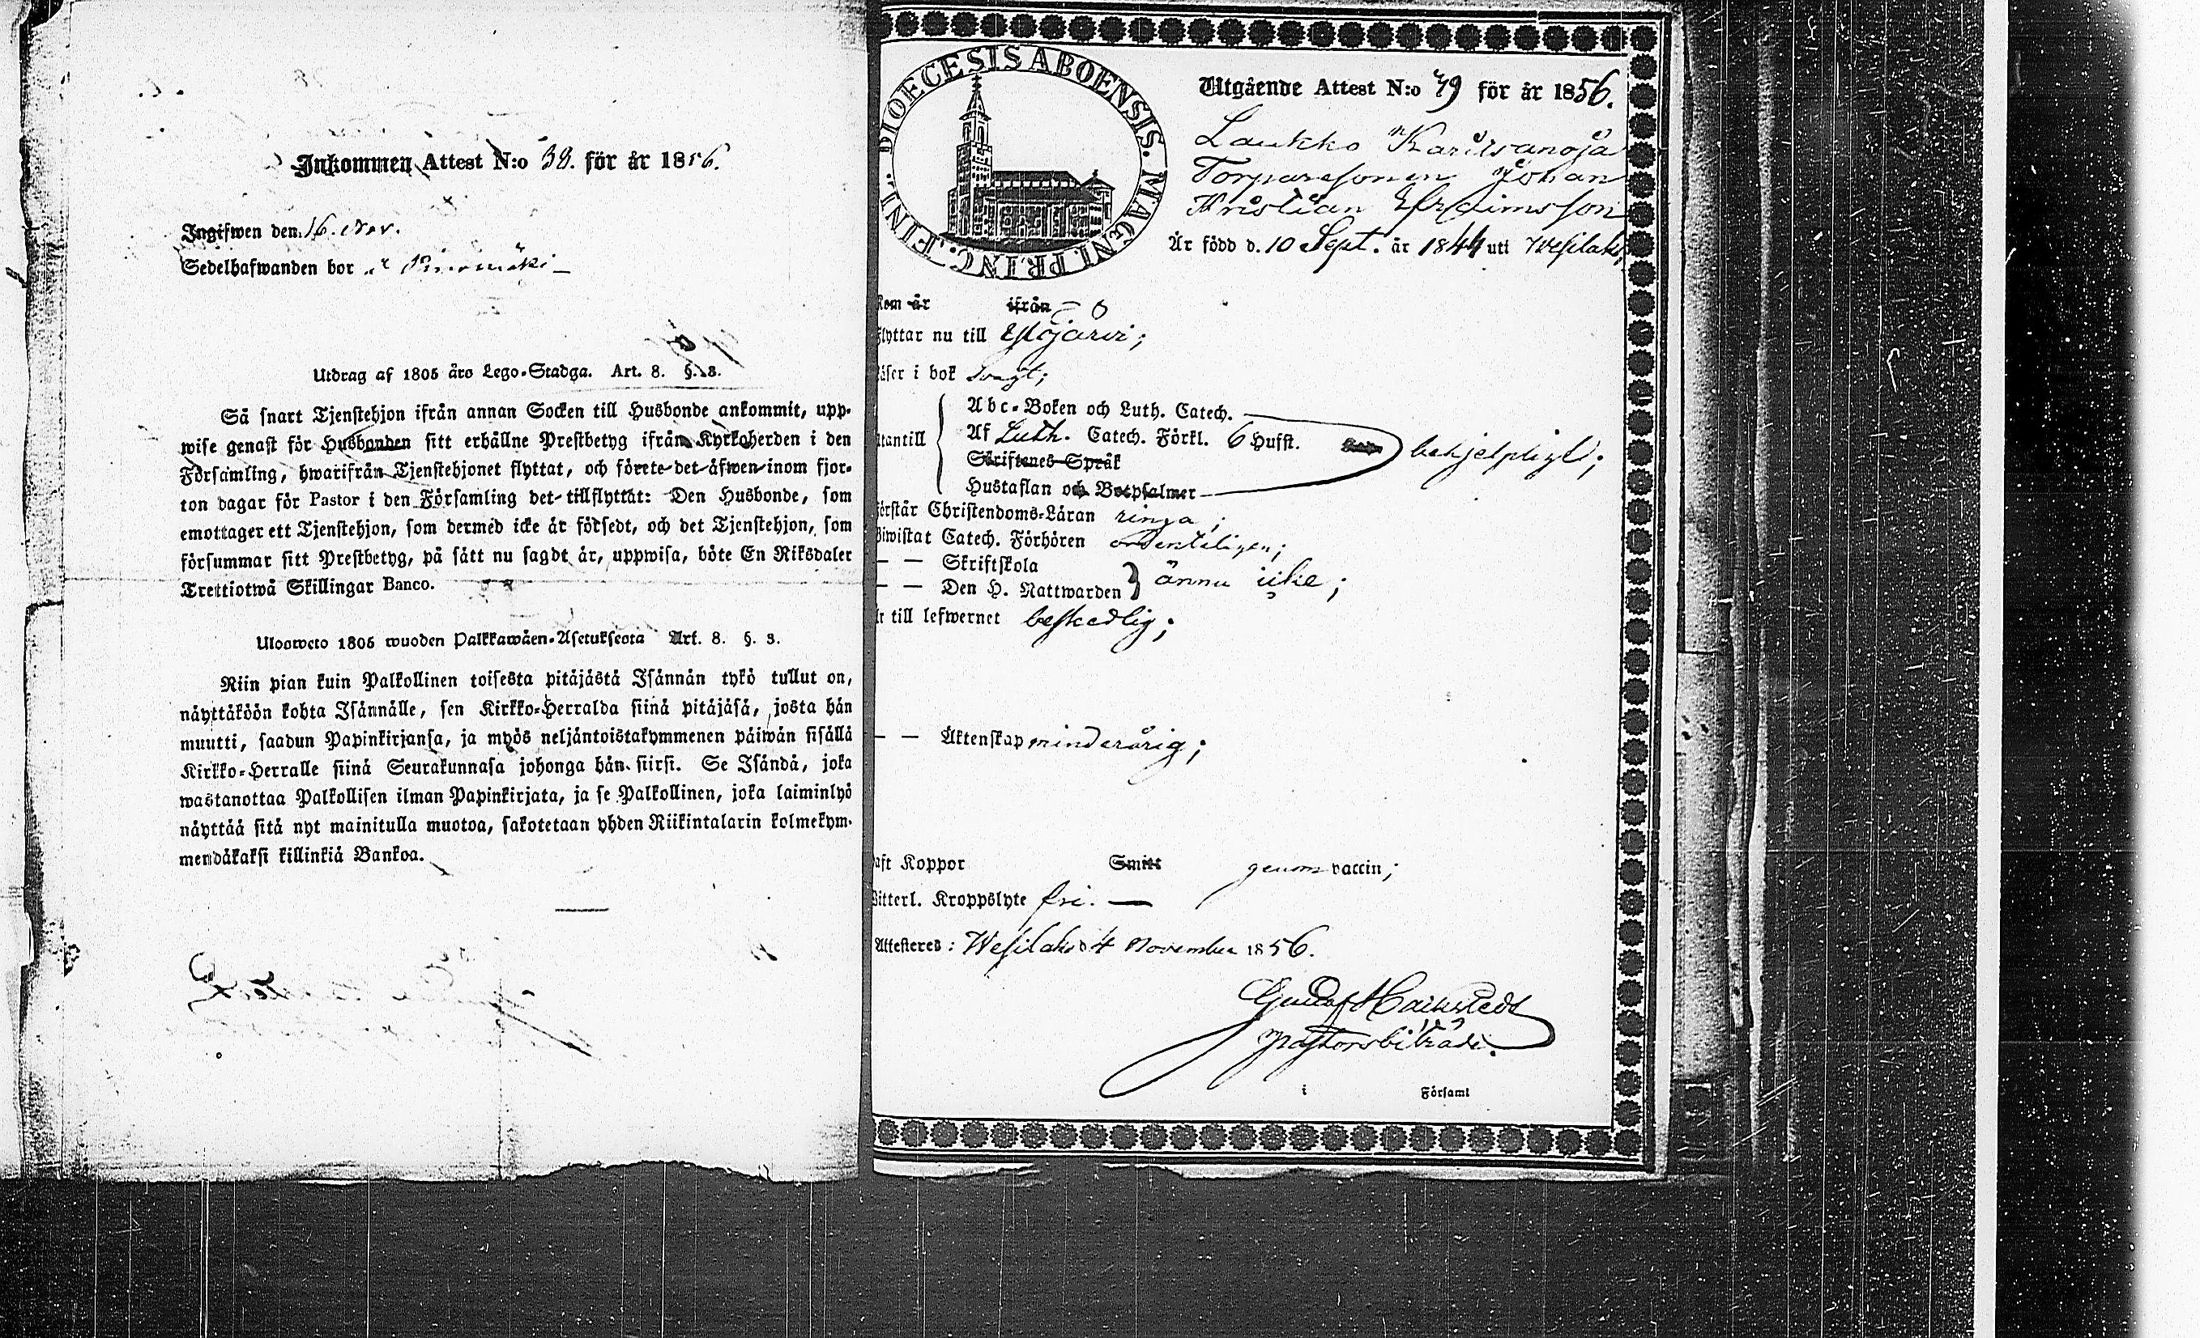 Inkommen Attest N:o 38. för år 1856.
Ingifwen den 16. Nov.
Sedelhafwanden bor
Utdrag af 1805 åro Lego-Stadga. Art. 8. §. 3.
Så snart Tjenstehjon ifrån annan Socken till Husbonde ankommit, upp-
wise genast för Husbonden sitt erhållne Prestbetyg ifrån Kyrkoherden i den
Församling, hwarifrån Tjenstehjonet flyttat, och förete det äfwen inom fjor-
ton dagar för Pastor i den Församling det tillflyttat: Den Husbonde, som
emottager ett Tjenstehjon, som dermed icke är försedt, och det Tjenstehjon, som
försummar sitt Prestbetyg, på sätt nu sagdt är, uppwisa, böte En Riksdaler
Trettiotwå Skillingar Banco.
Ulosweto 1805 wuoden Palkkawäen-Asetuksesta Art. 8. §. 3.
Niin pian kuin Palkollinen toisesta pitäjästä Isännän tykö tullut on,
näyttäköön kohta Isännälle, sen Kirkko-Herralda siinä pitäjäsä, josta hän
muutti, saadun Papinkirjansa, ja myös neljäntoistakymmenen päiwän sisällä
Kirkko-Herralle siinä Seurakunnasa johonga hän siirsi. Se Isändä, joka
wastanottaa Palkollisen ilman Papinkirjata, ja se Palkollinen, joka laiminlyö
näyttää sitä nyt mainitulla muotoa, sakotetaan yhden Riikintalarin kolmekym-
mendäkaksi killinkiä Bankoa.
DIOECESIS ABOENSIS. MAGNI. PRINC. FINL.
Utgående Attest N:o 79 för år 1856.
Laukko Karilsanoja
Torparesonen Johan
Kristian Efraimsson
Är född d. 10 Sept. år 1844 uti Wesilaks,
Kom år ifrån – 0
flyttar nu till Ylöjärvi;
läser i bok svagt;
utantill
Abc-Boken och Luth. Catech.
Af Luth. Catech. Förkl. 6 Hufst. behjelpligt;
Skriftenes Språk
Hustaflan och Botpsalmer
förstår Christendoms-Läran ringa;
biwistat Catech. Förhören ordenteligen;
— — Skriftskola
— — Den H. Nattwarden ännu icke;
är till lefwernet beskedlig;
— — Äktenskap minderårig;
haft Koppor Smitt genom vaccin;
Witterl. Kroppslyte fri. —
Attesteres: Wesilaks d 4 November 1856.
Gustaf
pastorsbiträde.
i Församl